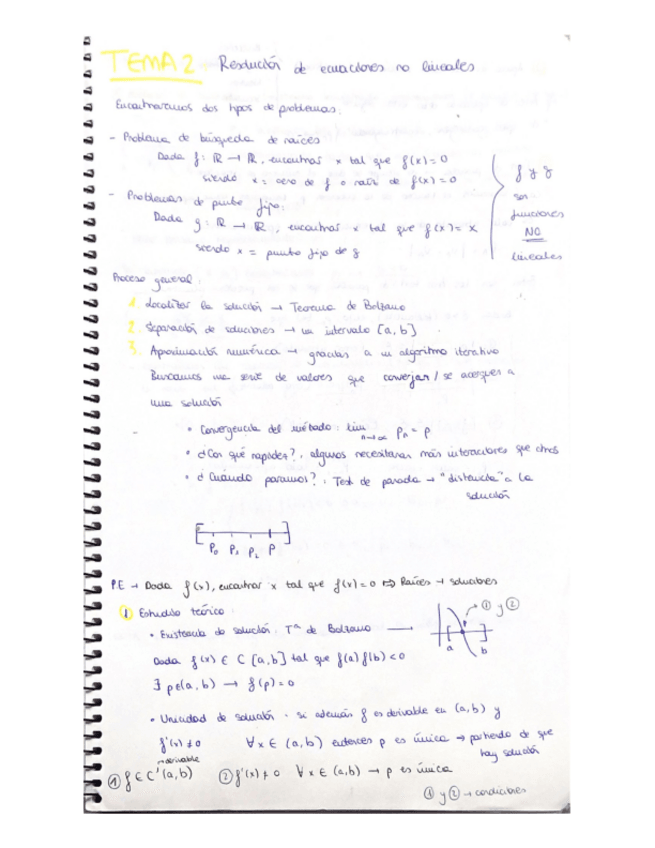 TEMA 2 Resolución de ecuaciones no lineales
Encontraremos dos tipos de problemas:
- Problema de búsqueda de raíces
Dada f: ℝ → ℝ, encontrar x tal que f(x) = 0
siendo x = cero de f o raíz de f(x) = 0
- Problemas de punto fijo:
Dada g: ℝ → ℝ, encontrar x tal que g(x) = x
siendo x = punto fijo de g
f y g
son
funciones
NO
lineales
Proceso general:
1. Localizar la solución → Teorema de Bolzano
2. Separación de soluciones → un intervalo [a, b]
3. Aproximación numérica → gracias a un algoritmo iterativo
Buscamos una serie de valores que converjan / se acerquen a
una solución
• Convergencia del método: lim n→∞ Pn = P
• ¿Con qué rapidez?, algunos necesitaran más interacciones que otros
• ¿Cuándo paramos?, Test de parada → "distancia" a la
solución
P0 P1 P2 P
PE → Dada f(x), encontrar x tal que f(x) = 0 ⇔ Raíces → soluciones
1 Estudio teórico:
• Existencia de solución: Tª de Bolzano →
① y ②
a b
Dada f(x) ∈ C [a, b] tal que f(a) f(b) < 0
∃ p ∈ (a, b) → f(p) = 0
• Unicidad de solución: si además f es derivable en (a, b) y
f'(x) ≠ 0 ∀x ∈ (a, b) entonces p es única → partiendo de que
hay solución
derivable
① f ∈ C'(a, b) ② f'(x) ≠ 0 ∀x ∈ (a, b) → p es única
① y ② → condiciones